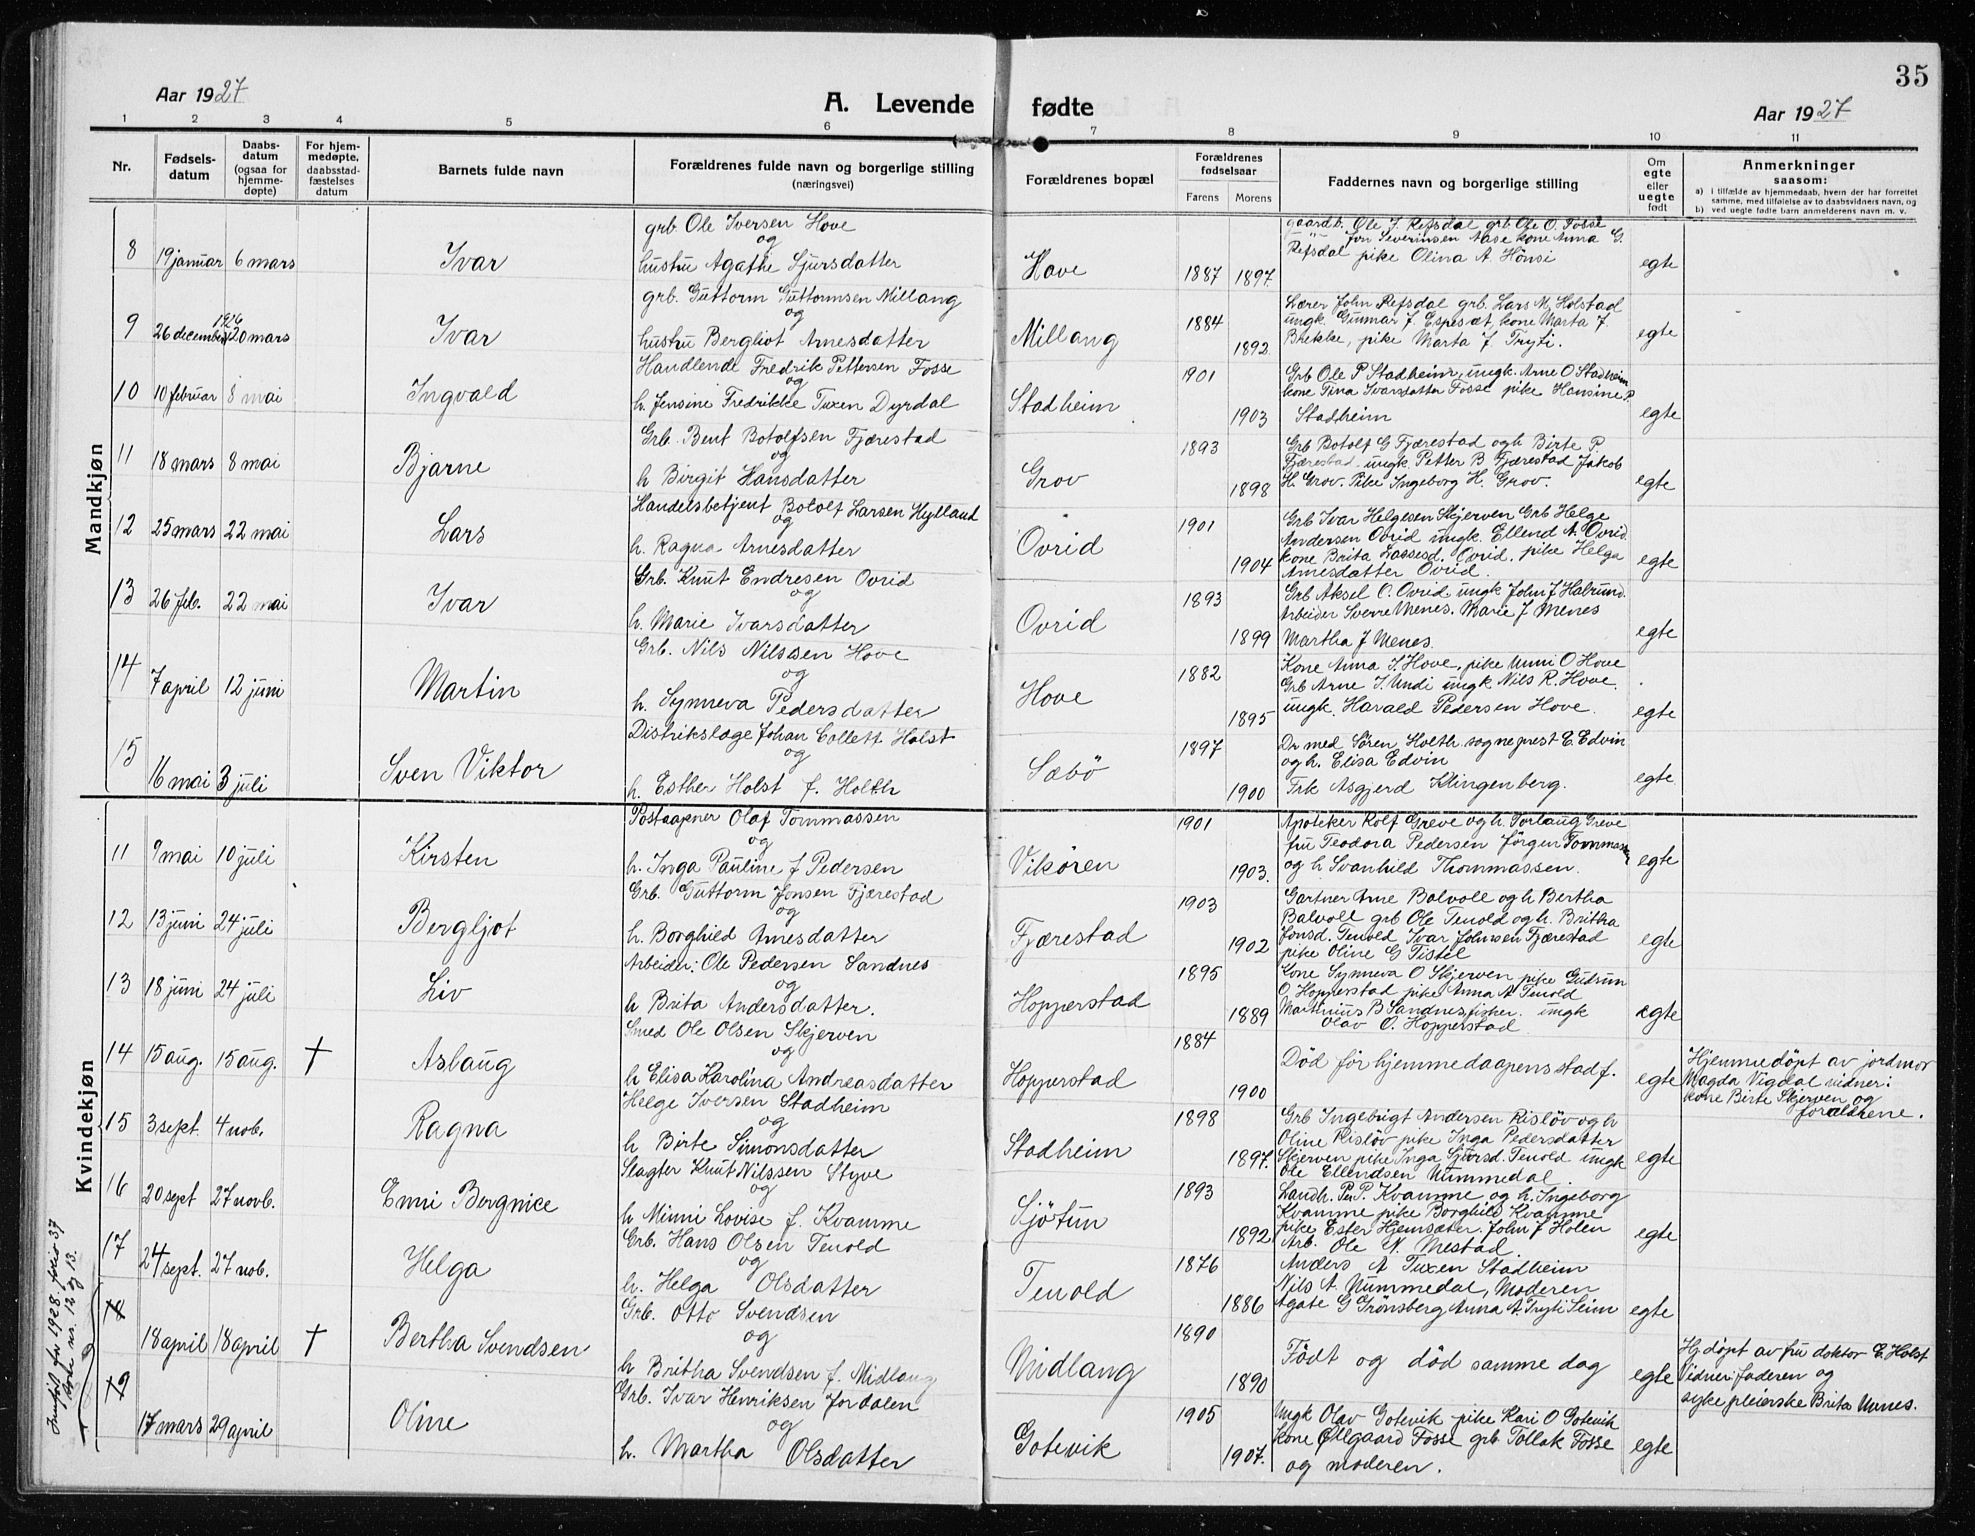 35
Aar 1927
A. Levende fødte
Aar 1927
1 2 3 4 5 6 7 8 9 10 11
Nr.
Fødsels-
datum
Daabs-
datum
(ogsaa for
hjemme-
døpte)
For hjem-
medøpte,
daabsstad-
fæstelses
datum
Barnets fulde navn
Forældrenes fulde navn og borgerlige stilling
(næringsvei)
Forældrenes bopæl
Forældrenes
fødselsaar
Farens Morens
Faddernes navn og borgerlige stilling
Om
egte
eller
uegte
født
Anmerkninger
saasom:
a) i tilfælde av hjemmedaab, hvem der har forrettet
samme, med tilføielse av to daabsvidners navn, og
b) ved uegte fødte barn anmelderens navn m. v.
Mandkjøn
8 19 januar 6 mars Ivar
grb Ole Iversen Hove
og
hustru Agathe Sjursdatter
Hove 1887 1897
gaardb. Ole J. Refsdal grb Ole O. Fosse
Jon Severinsen Aase kone Anna G.
Refsdal pike Olina A Hönsi
egte
9 26 december 1926 20 mars Ivar
grb. Guttorm Guttormsen Millang
og
hustru Bergliot Arnesdatter
Millang 1884 1892
Lærer John Refsdal grb. Lars M. Holstad
ungk. Gunnar J. Espesæt, kone Marta J
Brekke, pike Marta J Tryti.
egte
10 10 februar 8 mai Ingvald
Handlende Fredrik Pettersen Fosse
og
h. Jensine Fredrikke Tuxen Dyrdal
Stadheim 1901 1903
Grb Ole P Stadheim, ungk. Arne O Stadheim
kone Tina Ivarsdatter Fosse pike Hansine P.
Stadheim
egte
11 18 mars 8 mai Bjarne
Grb. Bent Botolfsen Fjærestad
og
h Birgit Hansdatter
Grov 1893 1898
Grb Botolf G Fjærestad og h Birte P.
Fjærestad ungk. Petter B Fjærestad Jakob
H. Grov. Pike Ingeborg H. Grov.
egte
12 25 mars 22 mai Lars
Handelsbetjent Botolf Larsen Hylland
og
h. Ragna Arnesdatter
Ovrid 1901 1904
Grb Ivar Helgesen Skjerven Grb Helge
Andersen Ovrid ungk. Ellend A. Ovrid
kone Brita Lassesd. Ovrid. pike Helga
Arnesdatter Ovrid.
egte
13 26 feb. 22 mai Ivar
Grb. Knut Endresen Ovrid
og
h. Marie Ivarsdatter
Ovrid 1893 1899
Grb Aksel O. Ovrid ungk John J Halrund.
Arbeider Sverre Menes. Marie J Menes
Martha J Menes.
egte
14 7 april 12 juni Martin
Grb. Nils Nilssen Hove
og
h. Synneva Pedersdatter
Hove 1882 1895
Kone Anna I. Hove, pike Unni O Hove
Grb Arne I. Undi ungk Nils R. Hove.
ungk. Harald Pedersen Hove.
egte
15 16 mai 3 juli Sven Viktor
Distrikslæge Johan Collett Holst
og
h. Esther Holst f. Holth
Sæbö 1897 1900
Dr med Sören Holth sogneprest E. Edvin
og h. Elisa Edvin
Frk Asgjerd Klingenberg.
egte
Kvindekjøn
11 9 mai 10 juli Kirsten
Postaapner Olaf Tommassen
og
h. Inga Pauline f Pedersen
Vikören 1901 1903.
Apoteker Rolf Greve og h. Torlaug Greve
fru Teodora Pedersen Jörgen Tommassen
og h Svanhild Thommassen.
egte
12 13 juni 24 juli Bergljot
Grb. Guttorm Jonsen Fjærestad
og
h. Borghild Arnesdatter
Fjærestad 1903 1902
Gartner Arne Balvoll og h Bertha
Balvoll grb Ole Tenold og h. Britha
Jonsd. Tenold Ivar Johnsen Fjærestad
pike Oline G Tistel
egte
13 18 juni 24 juli Liv
Arbeider: Ole Pedersen Sandnes
og
h Brita Andersdatter.
Hopperstad 1895 1889
Kone Synneva O Skjerven pike Gudrun
O. Hopperstad pike Anna A Tenold
Martinus B Sandnes fisker. ungk
Olav O. Hopperstad
egte
14 15 aug. 15 aug. † Aslaug
Smed Ole Olsen Skjerven
og
h Elisa Karolina Andreasdatter
Hopperstad 1884 1900
Död för hjemmedaapens stadf.
egte
Hjemmedöpt av jordmor
Magda Vigdal vidner:
kone Birte Skjerven og
forældrene.
15 3 sept. 4 nob. Ragna
Helge Iversen Stadheim
og
h Birte Simonsdatter
Stadheim 1898 1897.
Grb Ingebrigt Andersen Rislöv og h
Oline Rislöv pike Inga Pedersdatter
Skjerven pike Inga Sjursd. Tenold ungk
Ole Ellendsen Nummedal.
egte
16 20 sept 27 novb. Enni Borgnice
Slagter Knut Nilssen Styve
og
h Minni Lovise f. Kvamme
Sjötun 1893 1892
Landh. Per P. Kvamme og h. Ingeborg
Kvamme pike Borghild Kvamme
pike Ester Hjemsæter. John J Holen
Arb. Ole N. Mestad.
egte
17 24 sept. 27 nob. Helga
Grb. Hans Olsen Tenold
og
h. Helga Olsdatter
Tenold 1876 1886
Anders A Tuxen Stadheim
Nils A. Nummedal, Moderen
Agate G Grönsberg Anna A. Tryti Seim
egte
18 april 18 april † Bertha Svendsen
Grb. Otto Svendsen
og
h Britha Svendsen f. Midlang
Midlang 1890 1890
Födt og död samme dag
egte
Hj döpt av fru doktor E. Holst
Vidner: faderen og
sykepleierske Brita Unnes.
17 mars 29 april Oline
Grb. Ivar Henriksen Jordalen
og
h. Martha Olsdatter
Gotevik 1905 1907.
Ungk Olav Gotevik pike Kari O Gotevik
kone Ølgaard Fosse grb. Tollak Fosse
og moderen.
egte
1928. 37
nr. 12 og 13.